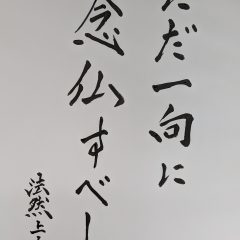 ただ一向に
念仏すべし
法然上